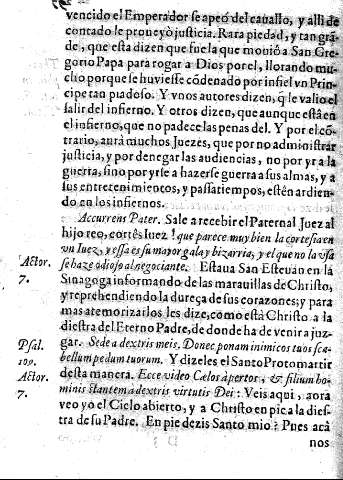 vencido el Emperador se apeó del cauallo, y alli de
contado le proueyò justicia. Rara piedad, y tan grã-
de, que esta dizen que fue la que mouiò a San Gre-
gorio Papa para rogar a Dios por el, llorando mu-
cho porque se huviesse cõdenado por infiel vn Prin-
cipe tan piadoso. Y vnos autores dizen, q̃ le valio el
salir del infierno. Y otros dizen, que aunque està en
el infierno, que no padece las penas del. Y por el cõ-
trario, aurà muchos Juezes, que por no administrar
justicia, y por denegar las audiencias, no por yr a la
guerra, sino por yrse a hazerse guerra a sus almas, y a
sus entretenimientos, y passatiempos, estèn ardien-
do en los infiernos.
Accurrens Pater. Sale a recebir el Paternal Juez al
hijo reo, cortès Iuez! que parece muy bien la cortesia en
vn Iuez, y essa es su mayor gala y bizarria, y el que no la vsa
Actor. se haze odioso al negociante. Estaua San Estevan en la
7. Sinagoga informando de las marauillas de Christo,
y reprehendiendo la dureça de sus corazones; y para
mas atemorizarlos les dize, como està Christo a la
diestra del Eterno Padre, de donde ha de venir a juz-
Psal. gar. Sede a dextris meis. Donec ponam inimicos tuos sca-
109. bellum pedum tuorum. Y dizeles el Santo Protomartir
Actor. desta manera. Ecce video Cælos apertos, & filium ho-
7. minis stantem a dextris virtutis Dei: Veis aqui, aora
veo yo el Cielo abierto, y a Christo en pie a la dies-
tra de su Padre. En pie dezis Santo mio? Pues acà
nos